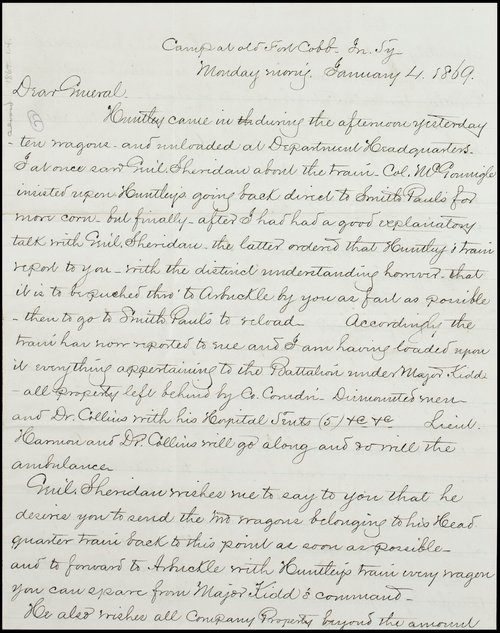 Camp at old Fort Cobb. In. Ty-
Monday morng. January 4. 1869.
Dear General.
Huntley came in th during the afternoon yesterday
ten wagons - and unloaded at Department Headquarters.
I at once saw Genl. Sheridan about the train - Col. McGonnigle
insisted upon Huntleys. going back direct to Smith Paul's for
more corn - but finally - after I had had a good explanatory
talk with Genl. Sheridan - the latter ordered that Huntley's train
report to you - with the distinct understanding however - that
it is to be pushed thro' to Arbuckle by you as fast as possible
- then to go to Smith Paul's to reload - Accordingly the
train has now reported to me and I am having loaded upon
it everything appertaining to the Battalion under Major Kidd -
- all property left behind by Co. Comdrs. Dismounted men -
and Dr. Collins with his Hospital Tents (5) &c &c Lieut.
Harmon and Dr. Collins will go along and so will the
ambulance
Genl. Sheridan wishes me to say to you that he
desires you to send the two wagons belonging to his Head
quarter train back to this point as soon as possible -
and to forward to Arbuckle with Huntley's train every wagon
you can spare from Major Kidd's command -
He also wishes all Company Property beyond the amount